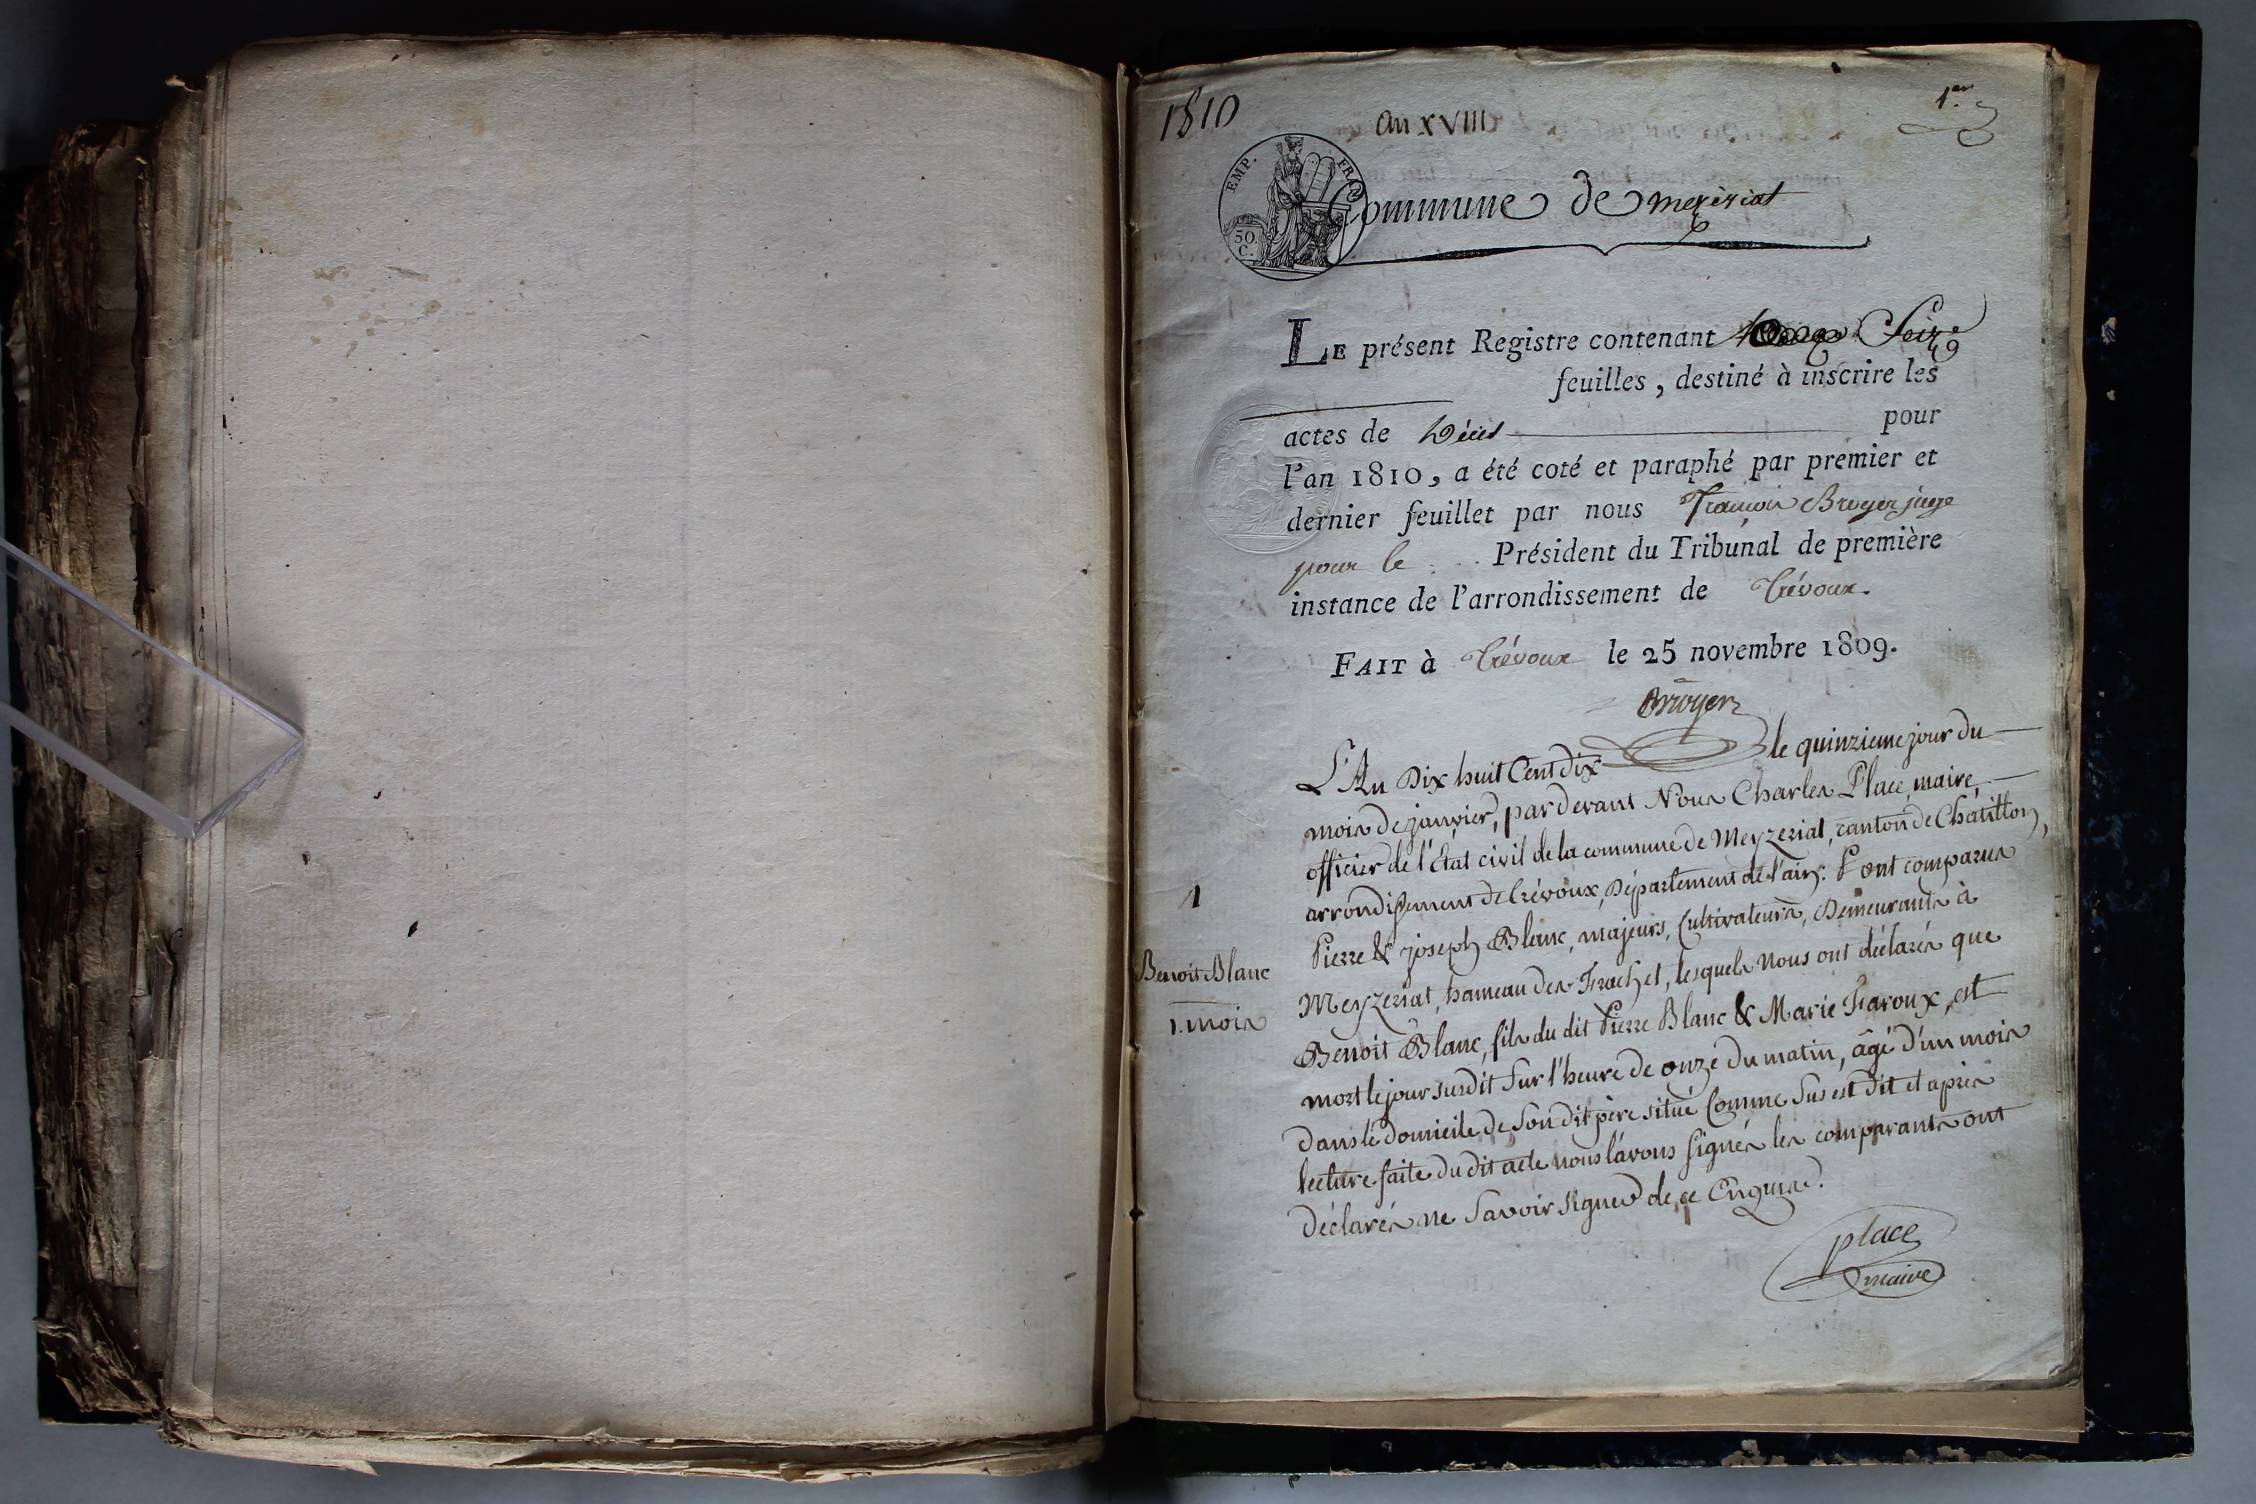 1810
An XVIII
1er
EMP. FRAN
50. C.
Commune de mezériat
LE présent Registre contenant Seize
feuilles, destiné à inscrire les
actes de Décès pour
l'an 1810, a été coté et paraphé par premier et
dernier feuillet par nous François Broyer juge
pour le Président du Tribunal de première
instance de l'arrondissement de Trévoux.
FAIT à Trévoux le 25 novembre 1809.
Broyer
L'An Dix huit Cent dix le quinzieme jour du
mois de janvier, pardevant Nous Charles Place, maire,
officier de l'Etat civil de la commune de Meyzeriat, canton de Chatillon,
arrondissement de Trévoux, Département de l'ain: Sont comparus
1
Pierre & joseph Blanc, majeurs, Cultivateurs, Demeurants à
Benoit Blanc
Meyzeriat, hameau des, lesquels Nous ont déclarés que
1. mois
Benoit Blanc, fils du dit Pierre Blanc & Marie, est
mort le jour susdit sur l'heure de onze du matin, âgé d'un mois
dans le domicile de Son dit père situé Comme Sus est dit et après
lecture faite du dit acte nous l'avons signés les comparants ont
déclarés ne Savoir signer de ce Enquis.
place
maire